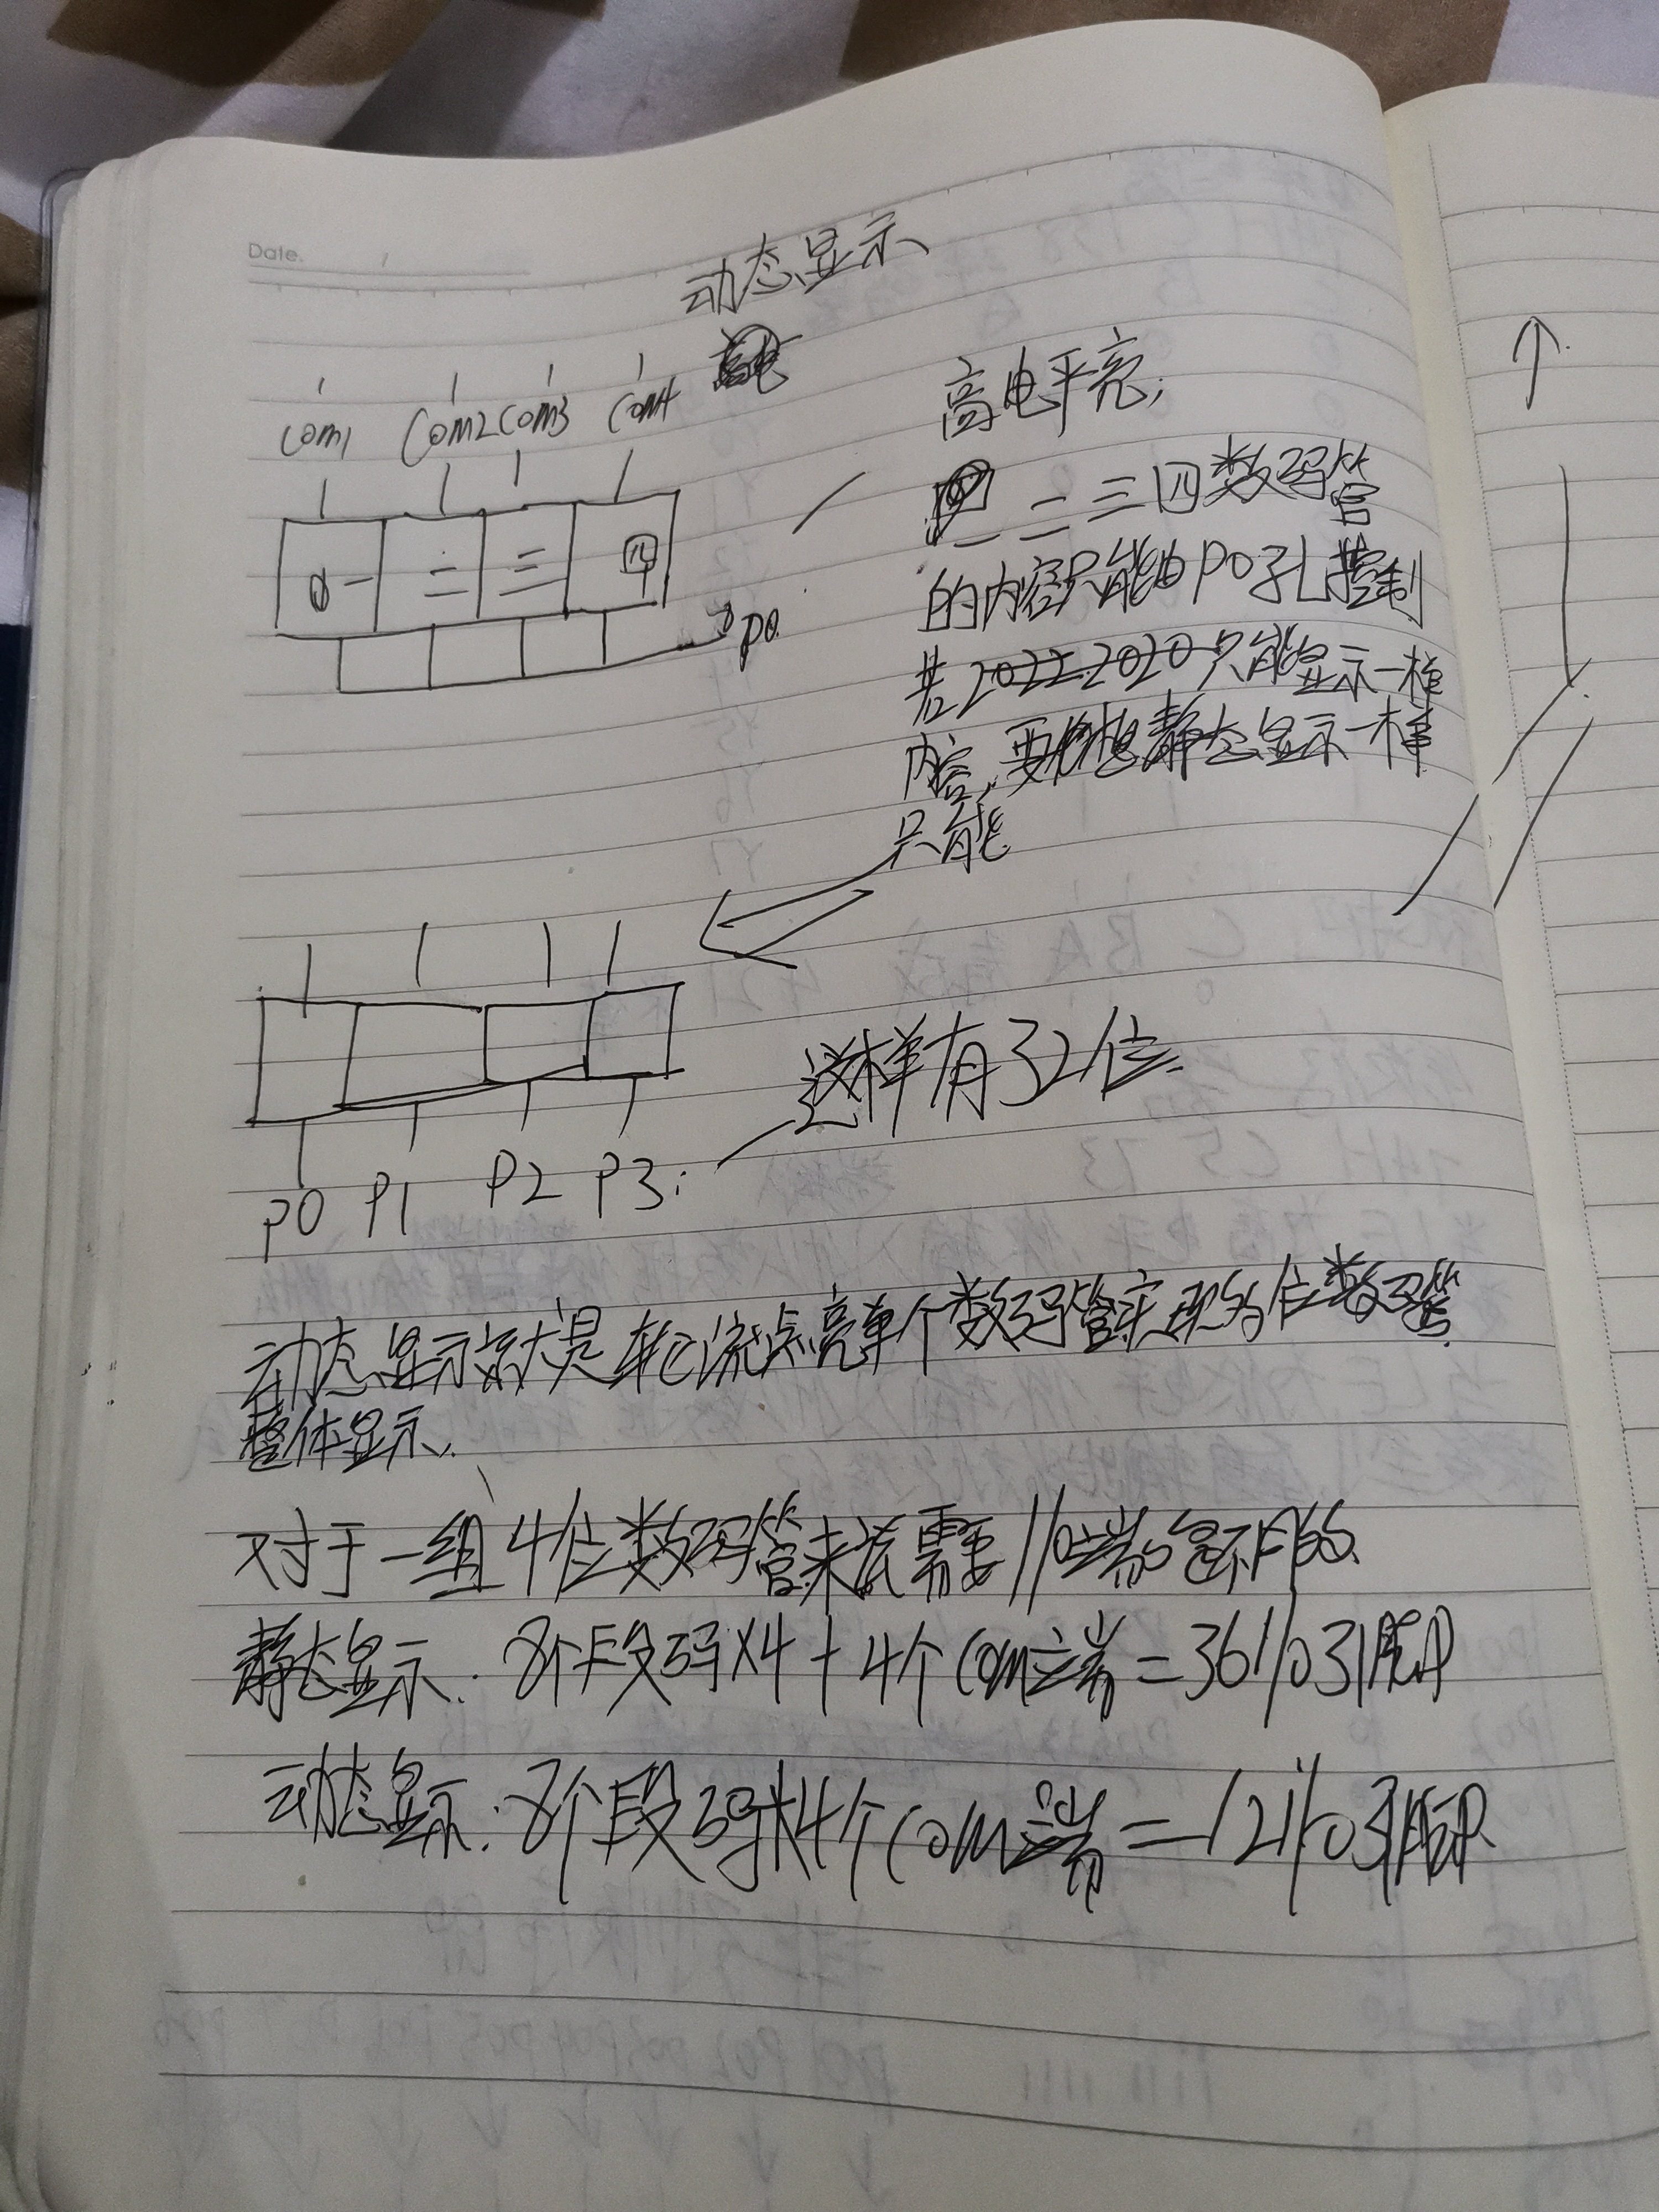 Date.
动态显示
com1 com2 com3 com4
一 二 三 四
P0
高电平亮;
一二三四数码管
的内容只能由P0孔控制
只能显示一样
内容,要想静态显示一样
只能
P0 P1 P2 P3:
这样有32位.
动态显示就是轮流点亮单个数码管实现多位数码管
整体显示.
对于一组4位数码管来说需要I/O端
静态显示:8个段码X4+4个com端=36I/O引脚
动态显示:8个段码+4个com端=12I/O引脚